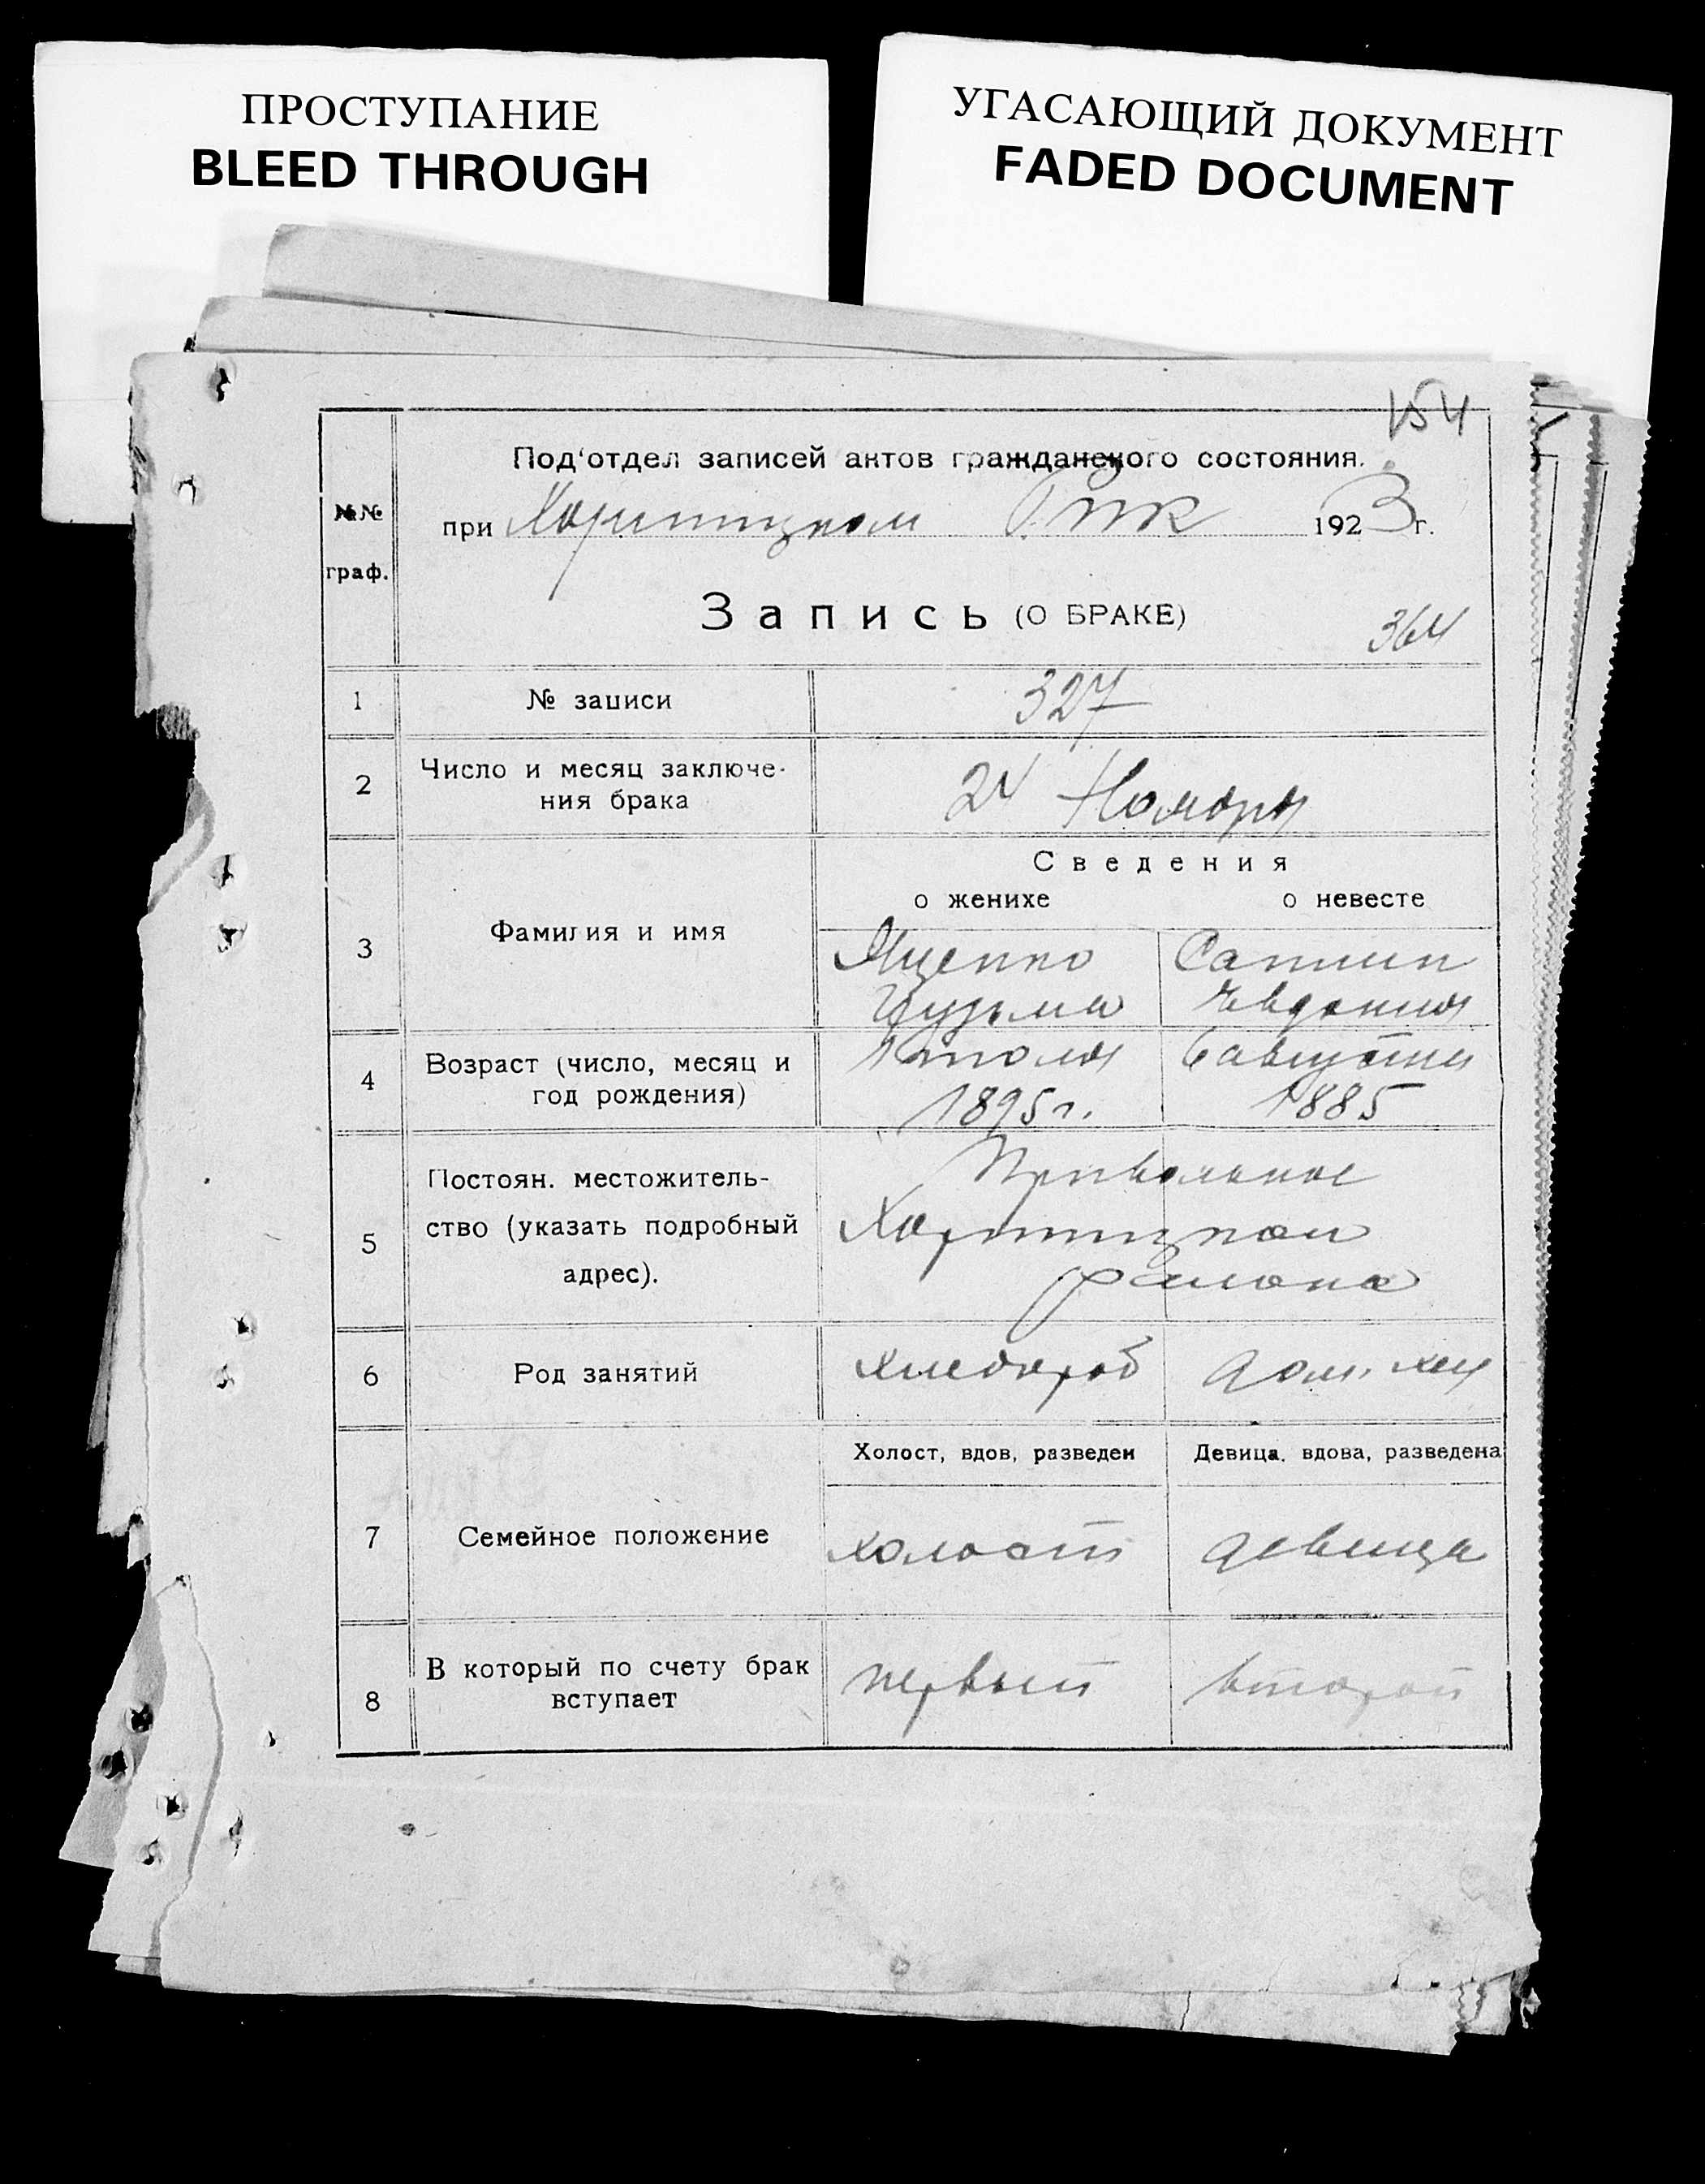 ПРОСТУПАНИЕ
BLEED THROUGH
УГАСАЮЩИЙ ДОКУМЕНТ
FADED DOCUMENT
154
Под'отдел записей актов гражданского состояния.
№№ граф.
при Хортицком Рик 1923 г.
Запись (О БРАКЕ)
364
1 № записи 327
2 Число и месяц заключе-
ния брака 24 Ноября
Сведения
о женихе о невесте
3 Фамилия и имя Яценко
Кузьма Евдокия
4 Возраст (число, месяц и
год рождения) 1 июля 6 августа
1895 г. 1885
5 Постоян. местожитель-
ство (указать подробный
адрес).
Привольное
Хортицкой
района
6 Род занятий хлебороб дом. хоз
Холост, вдов, разведен Девица, вдова, разведена
7 Семейное положение холост девица
8 В который по счету брак
вступает первый второй